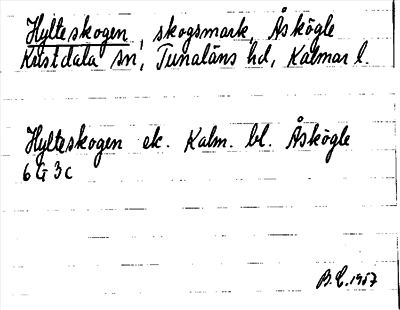 Hylteskogen, skogsmark, Åskögle
Kristdala sn, Tunaläns hd, Kalmar l.
Hylteskogen ek. Kalm. bl. Åskögle
6 G 3 c
B.E. 1957